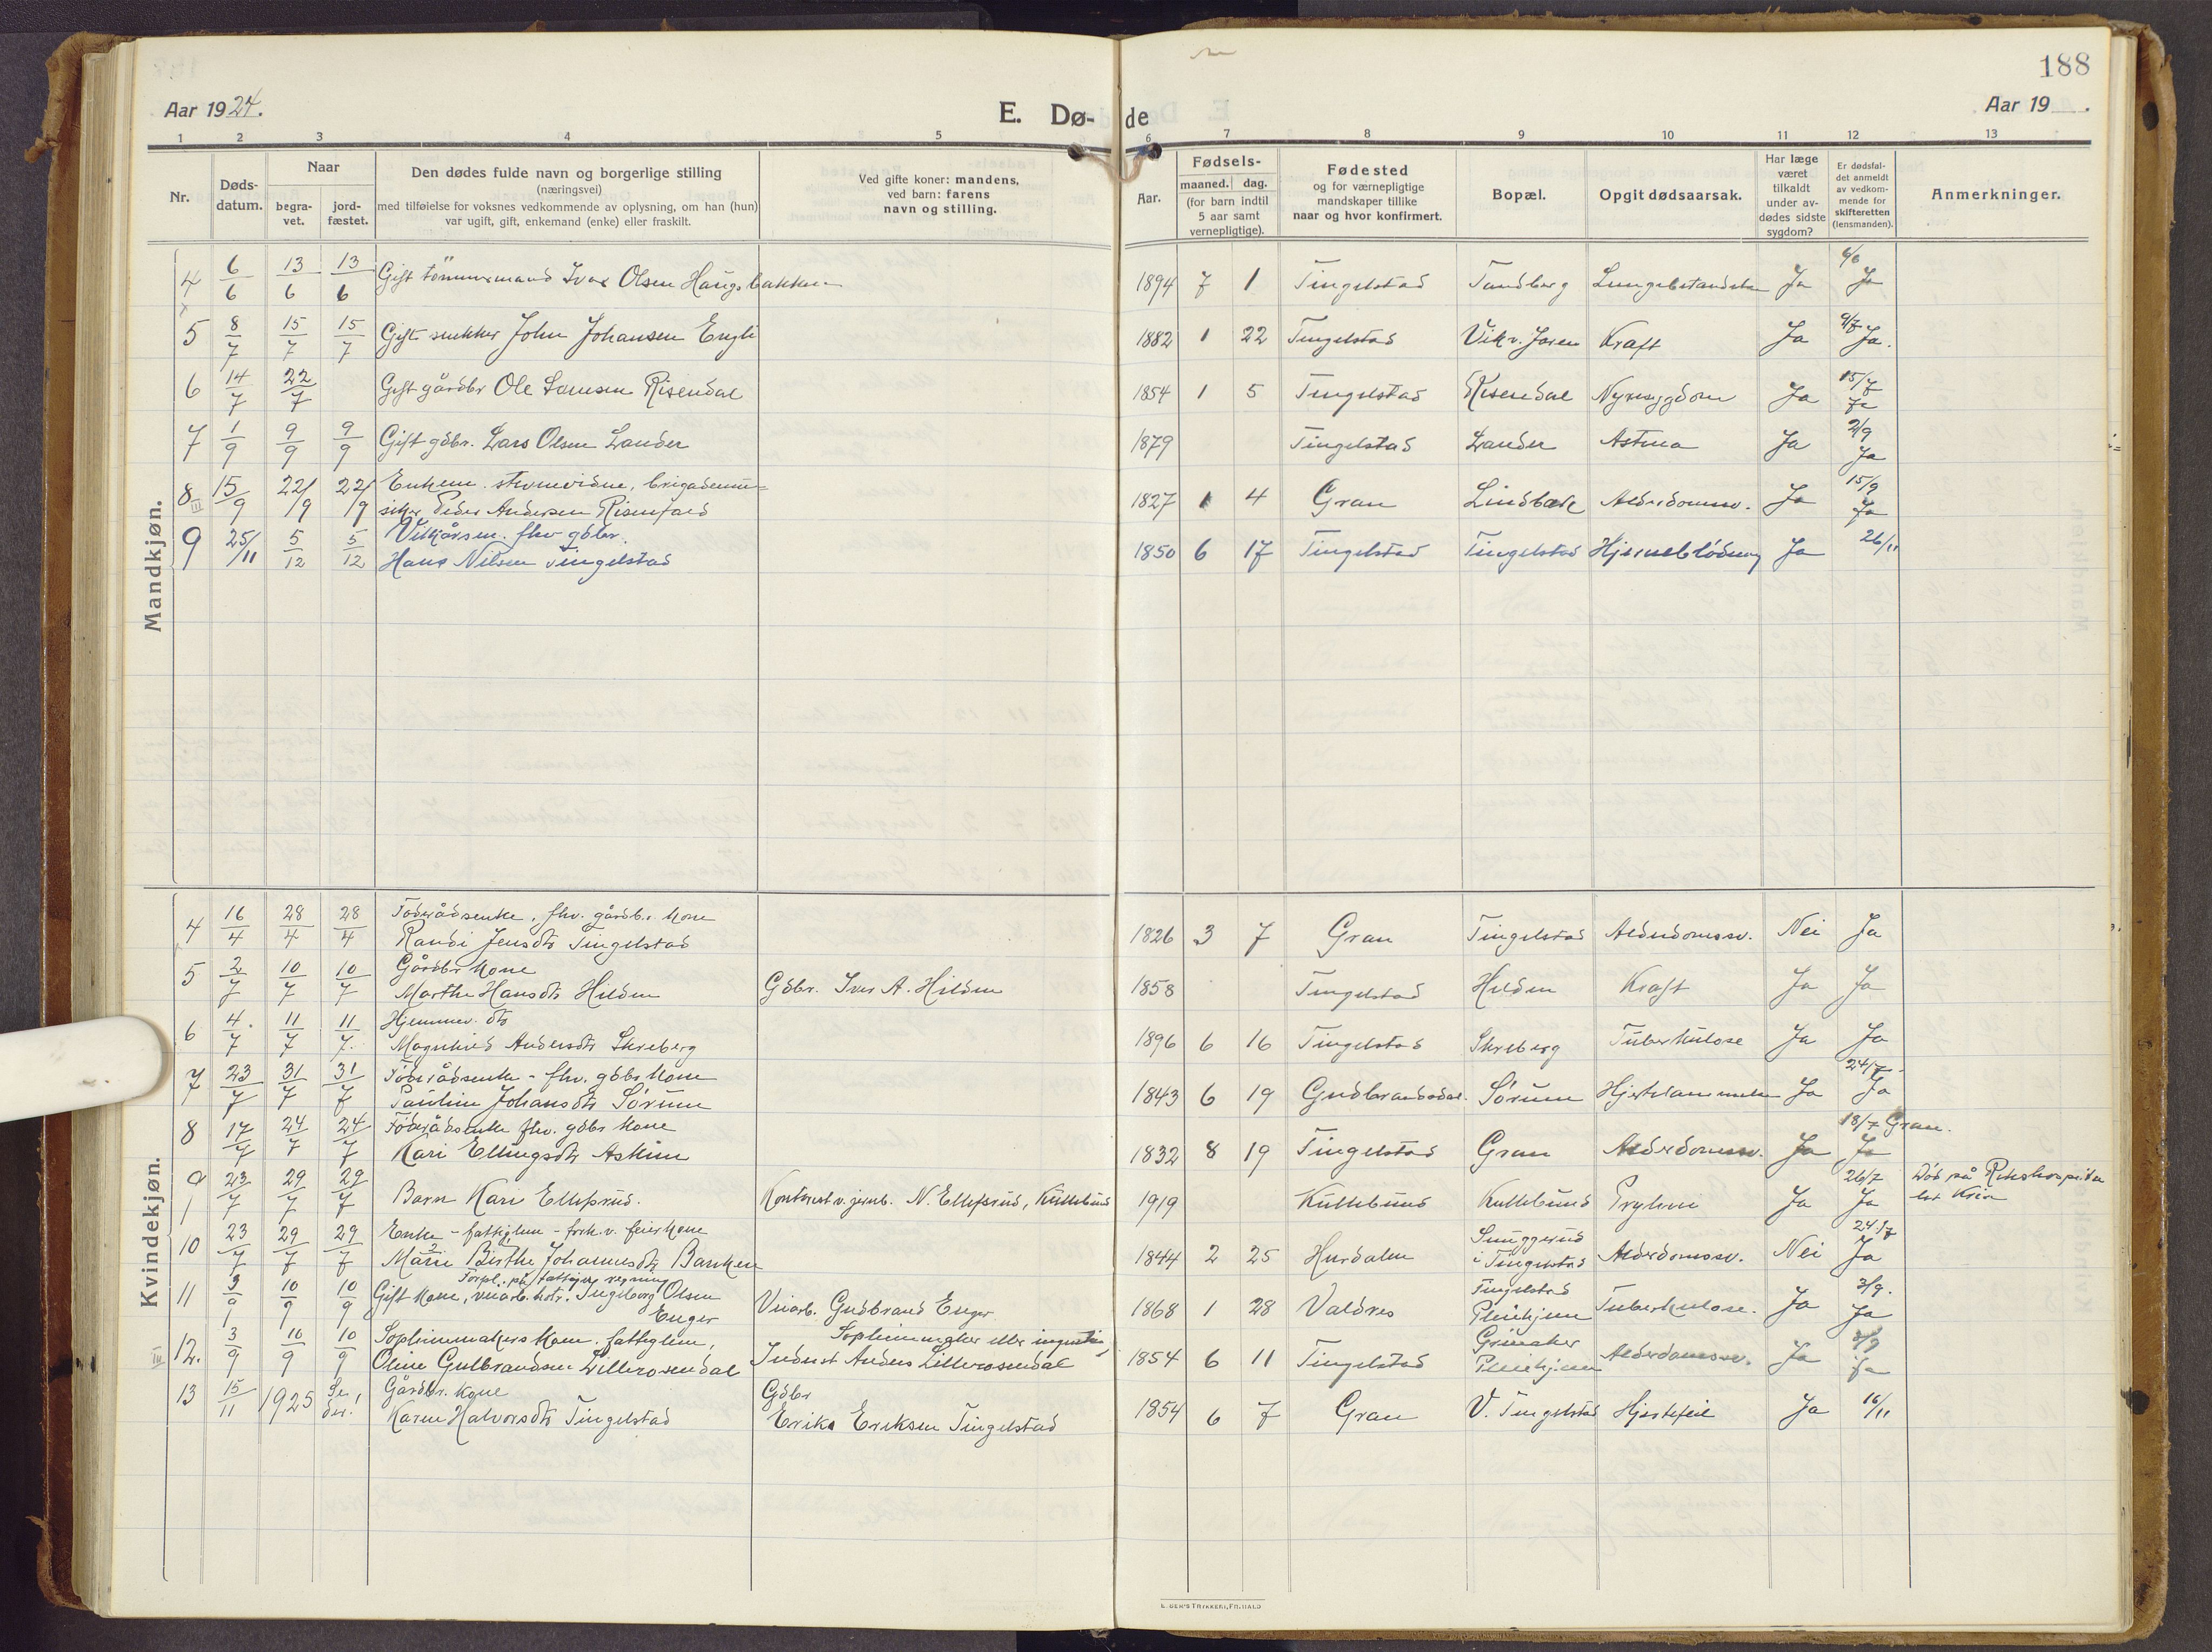 188
Aar 1924.
E. Dø-
de
Aar 19 .
1 2 3 4 5 6 7 8 9 10 11 12 13
Nr.
Døds-
datum.
Naar
begra-
vet.
jord-
fæstet.
Den dødes fulde navn og borgerlige stilling
(næringsvei)
med tilføielse for voksnes vedkommende av oplysning, om han (hun)
var ugift, gift, enkemand (enke) eller fraskilt.
Ved gifte koner: mandens,
ved barn: farens
navn og stilling.
Aar.
Fødsels-
maaned. dag.
(for barn indtil
5 aar samt
vernepligtige).
Fødested
og for værnepligtige
mandskaper tillike
naar og hvor konfirmert.
Bopæl.
Opgit dødsaarsak.
Har læge
været
tilkaldt
under av-
dødes sidste
sygdom?
Er dødsfal-
det anmeldt
av vedkom-
mende for
skifteretten
(lensmanden).
Anmerkninger.
Mandkjøn.
4 6/6 13/6 13/6 Gift tömmermand Ivar Olsen Haugsbakken 1894 7 1 Tingelstad Tandberg Lungebetændelse Ja 6/6 Ja
5 8/7 15/7 15/7 Gift snekker John Johansen Engli 1882 1 22 Tingelstad Vik v. Jaren Kraft Ja 9/7 Ja.
6 14/7 22/7 Gift gårdbr Ole Larsen Risendal 1854 1 5 Tingelstad Risendal Nyresygdom Ja 15/7 Ja
7 1/9 9/9 9/9 Gift gdbr. Lars Olsen Lander 1879 Tingelstad Lander Astma Ja 2/9 Ja
8 15/9 22/9 22/9 Enkem. stevnevidne, brigademu=
siker Peder Andersen Risenfald 1827 1 4 Gran Lindbæk Alderdomssv. Ja 15/9 Ja
9 25/11 5/12 5/12 Vilkårsm. fhv gdbr.
Hans Nilsen Tingelstad 1850 6 17 Tingelstad Tingelstad Hjerneblødning Ja 26/11
Kvindekjøn.
4 16/4 28/4 28/4 Föderådsenke, fhv. gårdb.s kone
Randi Jensdtr Tingelstad 1826 3 7 Gran Tingelstad Alderdomssv. Nei Ja
5 2/7 10/7 10/7 Gårdbr kone
Marthe Hansdtr Hilden Gdbr. Iver A. Hilden 1858 Tingelstad Hilden Kraft Ja Ja
6 4/7 11/7 11/7. Hjemmev. dtr
Magnhild Andersdtr Skreberg 1896 6 16 Tingelstad Skreberg Tuberkulose Ja Ja
7 23/7 31/7 31/7 Föderådsenke - fhv. gdbr kone
Pauline Johansdtr Sörum 1843 6 19 Gudbrandsdal. Sörum Hjertelammelse Ja 24/7 Ja
8 17/7 24/7 24/7 Föderådsenke fhv. gdbr kone
Kari Ellingsdtr Askim 1832 8 19 Tingelstad Gran Alderdomssv. Ja 18/7 Gran. Ja
9 23/7 29/7 29/7 Barn Kari Ellefsrud. Kontorist v. jernb. N. Ellefsrud, Kullebund 1919 Kullebund Kullebund Ja 26/7 Ja Död på Rikshospita
let Kr.ia
10 23/7 29/7 29/7 Enke - fattiglem - forh.v. feier kone
Marie Birthe Johannesdtr Bakken 1844 2 25 Hurdalen Smeggerud
i Tingelstad Alderdomssv. Nei 24/7 Ja
11 3/9 10/9 10/9 Forpl. på fattigv. regning
Gift kone, veiarb. hstr. Ingeborg Olsen
Enger Veiarb. Gudbrand Enger 1868 1 28 Valdres Tingelstad
Pleiehjem Tuberkulose. Ja 3/9. Ja
12. 3/9 10/9 10/9 kone. fattiglem,
Oline Gulbrandsen Lillerosendal
Anders Lillerosendal 1854 6 11 Tingelstad Grinaker
Pleiehjem Alderdomssv. Ja 3/9 Ja
13 15/11 1925 Se der! Gårdbr. kone
Karen Halvorsdtr Tingelstad Gdbr
Erik Eriksen Tingelstad 1854 6 7 Gran V. Tingelstad Hjertefeil Ja 16/11